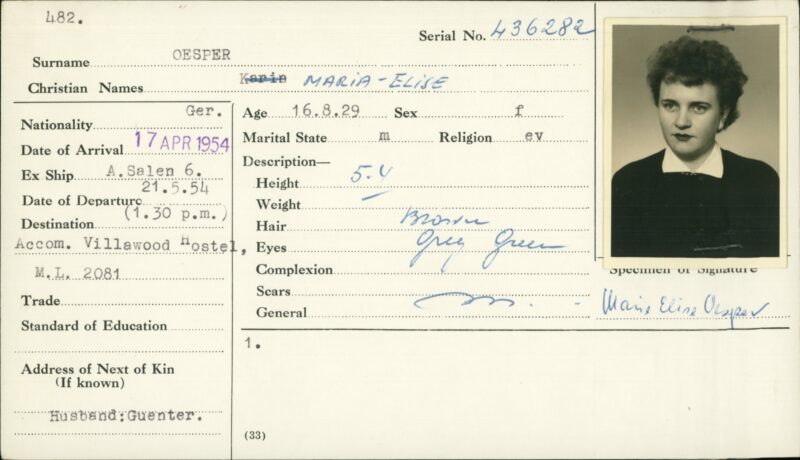 482.
Serial No. 436282
Surname OESPER
Christian Names Karin MARIA-ELISE
Nationality Ger.
Date of Arrival 17 APR 1954
Ex Ship A.Salen 6.
Date of Departure 21.5.54
Destination (1.30 p.m.)
Accom. Villawood Hostel,
M.L. 2081
Trade
Standard of Education
Address of Next of Kin
(If known)
Husband:Guenter.
Age 16.8.29 Sex f
Marital State m Religion ev
Description—
Height 5.4
Weight —
Hair Brown
Eyes Grey Green
Complexion
Scars
General
Specimen of Signature
Marie Elise Oesper
1.
(33)